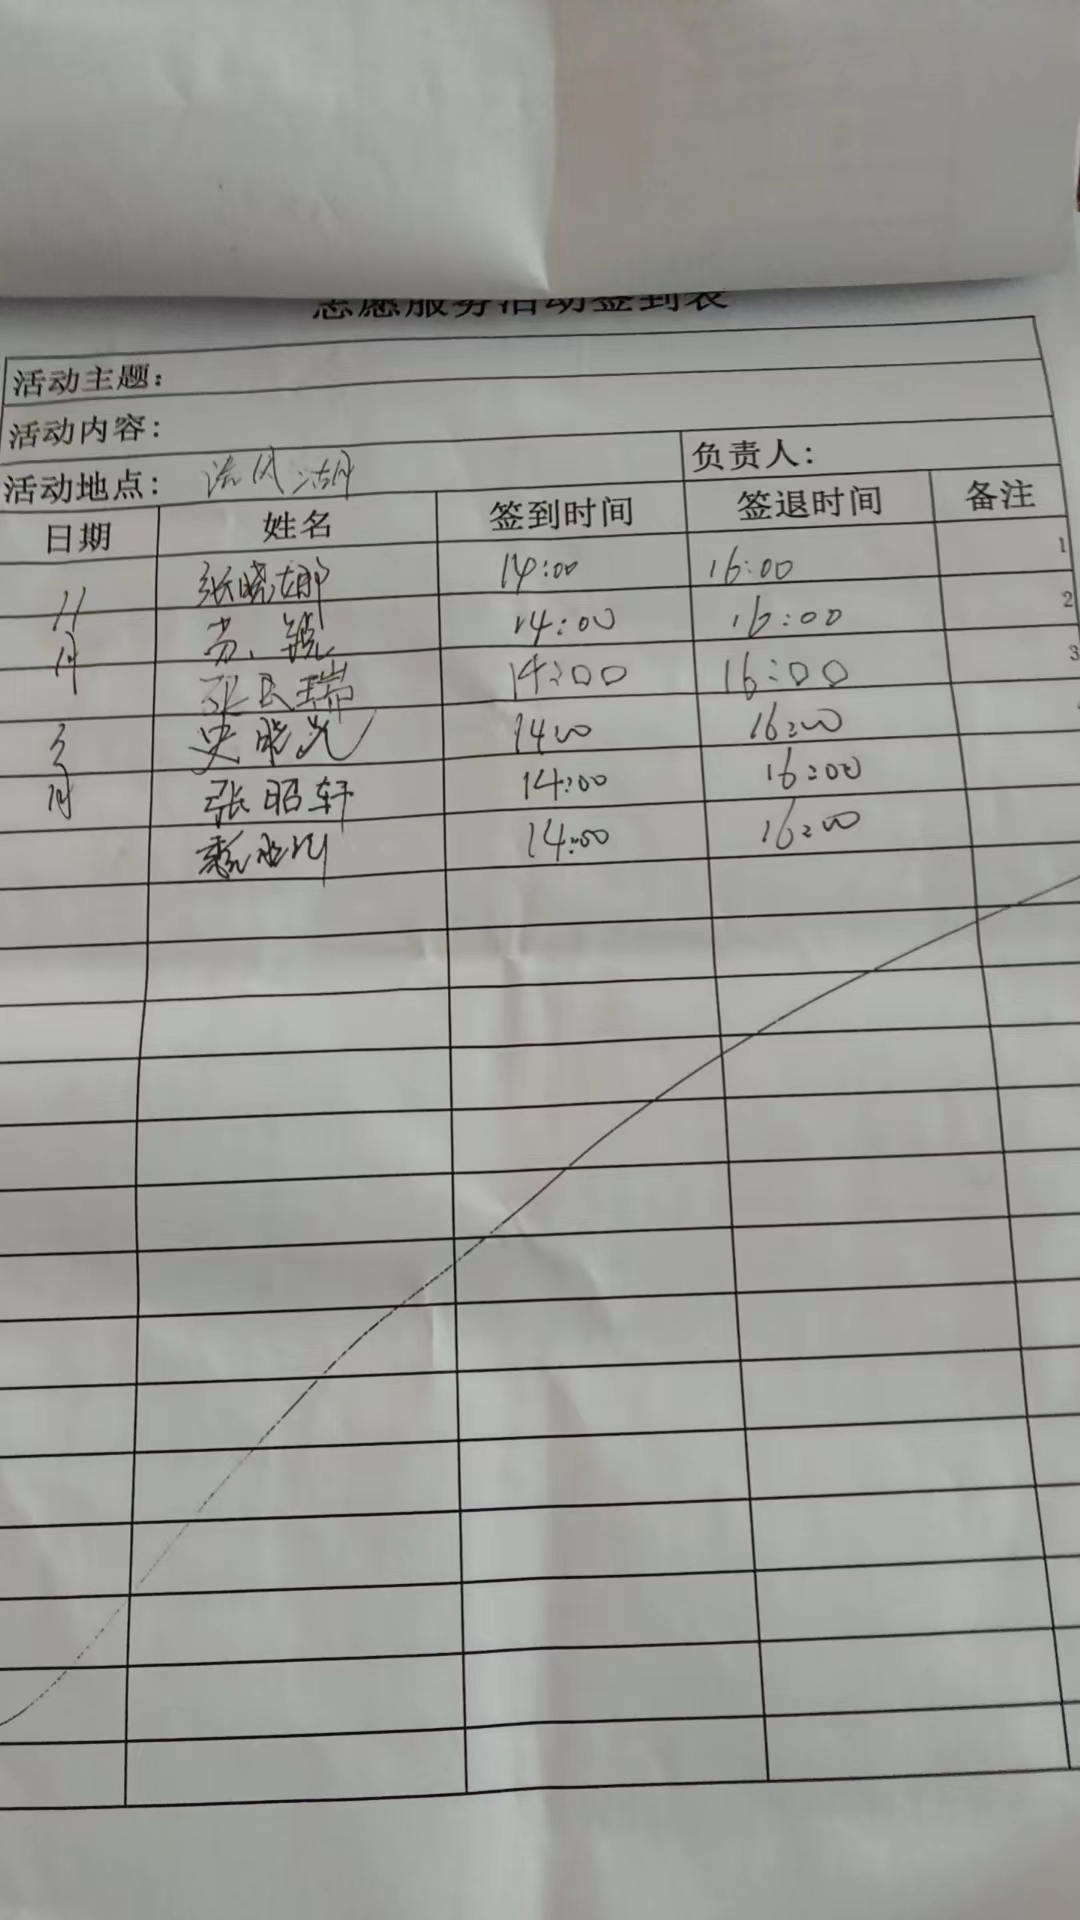 志愿服务活动签到表
活动主题：
活动内容：
活动地点： 负责人：
日期 姓名 签到时间 签退时间 备注
11 张晓娜 14:00 16:00 1
月 苏 14:00 16:00 2
瑞 14:00 16:00 3
史晓光 14:00 16:00
月 张昭轩 14:00 16:00
14:00 16:00